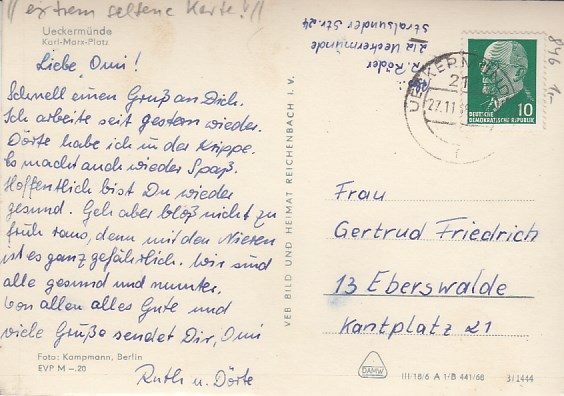 // extrem seltene Karte! //
Ueckermünde
Karl-Marx-Platz
Liebe Omi!
Schnell einen Gruß an Dich.
Ich arbeite seit gestern wieder.
Dörte habe ich in der Krippe.
Es macht auch wieder Spaß.
Hoffentlich bist Du wieder
gesund. Geh aber bloß nicht zu
früh raus, denn mit den Nieren
ist es ganz gefährlich. Wir sind
alle gesund und munter.
Von allen alles Gute und
viele Grüße sendet Dir, Omi
Ruth u. Dörte
Foto: Kampmann, Berlin
EVP M –.20
VEB BILD UND HEIMAT REICHENBACH I. V.
R. Röder
212 Ueckermünde
Stralsunder Str. 24
UECKERMÜNDE
21
27.11
10
DEUTSCHE
DEMOKRATISCHE REPUBLIK
846
1-
Frau
Gertrud Friedrich
13 Eberswalde
Kantplatz 21
DAMW
III/18/6 A 1/B 441/66 3/1444